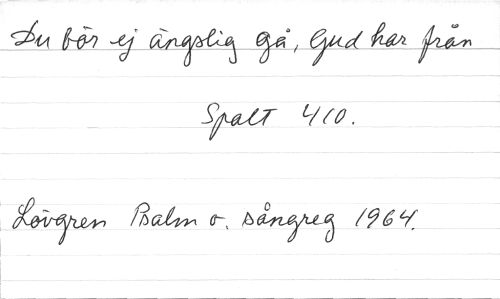 Du bör ej ängslig gå, Gud har från
Spalt 410.
Lövgren Psalm o. sångreg 1964.